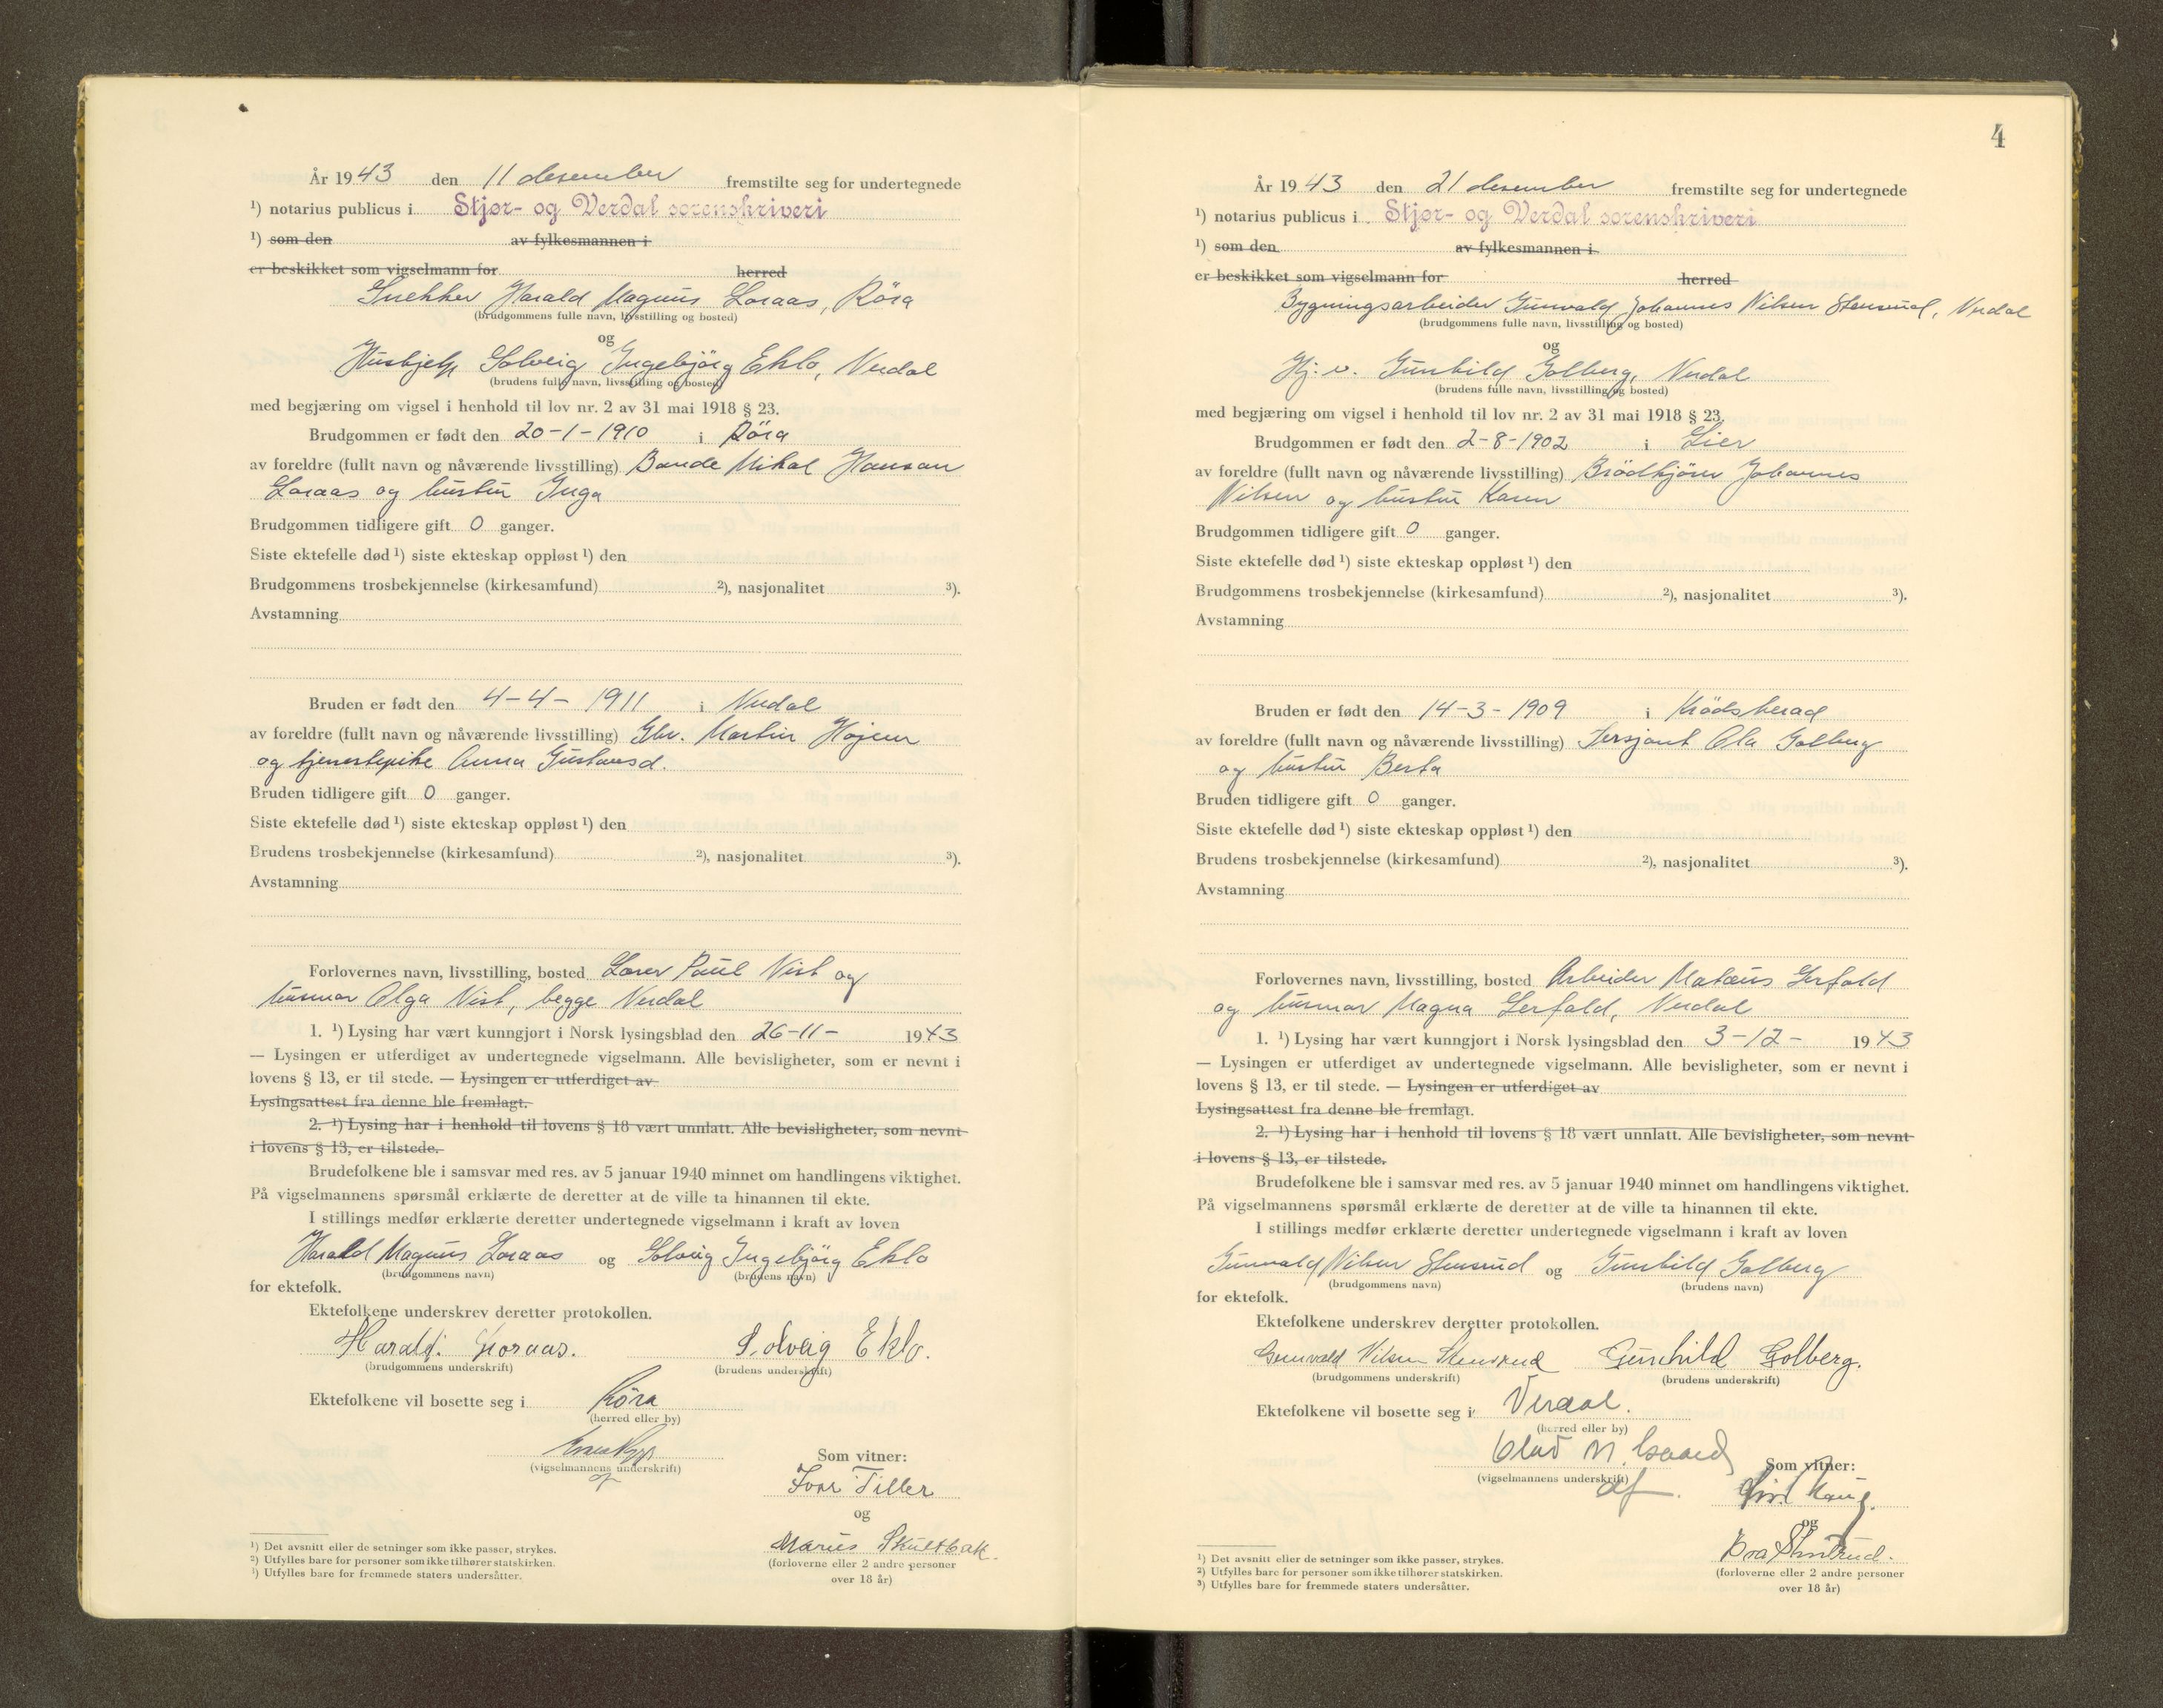 År 1943 den 11 desember fremstilte seg for undertegnede
¹) notarius publicus i Stjør- og Verdal sorenskriveri
¹) som den av fylkesmannen i
er beskikket som vigselmann for herred
Snekker Harald Magnus Loraas, Röra
(brudgommens fulle navn, livsstilling og bosted)
og
Hushjelp Solveig Ingebjörg Eklo, Verdal
(brudens fulle navn, livsstilling og bosted)
med begjæring om vigsel i henhold til lov nr. 2 av 31 mai 1918 § 23.
Brudgommen er født den 20-1-1910 i Röra
av foreldre (fullt navn og nåværende livsstilling) Bonde Mikal Hansen
Loraas og hustru Inga
Brudgommen tidligere gift 0 ganger.
Siste ektefelle død ¹) siste ekteskap oppløst ¹) den
Brudgommens trosbekjennelse (kirkesamfund) ²), nasjonalitet ³).
Avstamning
Bruden er født den 4-4-1911 i Verdal
av foreldre (fullt navn og nåværende livsstilling) Gbr. Martin Højem
og tjenestepike Anna Gustavsd.
Bruden tidligere gift 0 ganger.
Siste ektefelle død ¹) siste ekteskap oppløst ¹) den
Brudens trosbekjennelse (kirkesamfund) ²), nasjonalitet ³).
Avstamning
Forlovernes navn, livsstilling, bosted Lærer Paul Vist og
husmor Olga Vist, begge Verdal
1. ¹) Lysing har vært kunngjort i Norsk lysingsblad den 26-11- 1943
— Lysingen er utferdiget av undertegnede vigselmann. Alle bevisligheter, som er nevnt i
lovens § 13, er til stede. — Lysingen er utferdiget av
Lysingsattest fra denne ble fremlagt.
2. ¹) Lysing har i henhold til lovens § 18 vært unnlatt. Alle bevisligheter, som nevnt
i lovens § 13, er tilstede.
Brudefolkene ble i samsvar med res. av 5 januar 1940 minnet om handlingens viktighet.
På vigselmannens spørsmål erklærte de deretter at de ville ta hinannen til ekte.
I stillings medfør erklærte deretter undertegnede vigselmann i kraft av loven
Harald Magnus Loraas og Solveig Ingebjörg Eklo
(brudgommens navn) (brudens navn)
for ektefolk.
Ektefolkene underskrev deretter protokollen.
Harald Loraas. Solveig Eklo.
(brudgommens underskrift) (brudens underskrift)
Ektefolkene vil bosette seg i Röra
(herred eller by)
(vigselmannens underskrift)
Som vitner:
Ivar Tiller
og
Marius Skultbak.
(forloverne eller 2 andre personer
over 18 år)
¹) Det avsnitt eller de setninger som ikke passer, strykes.
²) Utfylles bare for personer som ikke tilhører statskirken.
³) Utfylles bare for fremmede staters undersåtter.
4
År 1943 den 21 desember fremstilte seg for undertegnede
¹) notarius publicus i Stjør- og Verdal sorenskriveri
¹) som den av fylkesmannen i
er beskikket som vigselmann for herred
Bygningsarbeider Gunvald Johannes Nilsen Stensrud, Verdal
(brudgommens fulle navn, livsstilling og bosted)
og
Hj. v. Gunhild Golberg, Verdal
(brudens fulle navn, livsstilling og bosted)
med begjæring om vigsel i henhold til lov nr. 2 av 31 mai 1918 § 23.
Brudgommen er født den 2-8-1902 i Lier
av foreldre (fullt navn og nåværende livsstilling) Brödkjörer Johannes
Nilsen og hustru Karen
Brudgommen tidligere gift 0 ganger.
Siste ektefelle død ¹) siste ekteskap oppløst ¹) den
Brudgommens trosbekjennelse (kirkesamfund) ²), nasjonalitet ³).
Avstamning
Bruden er født den 14-3-1909 i Krödsherad
av foreldre (fullt navn og nåværende livsstilling) Sersjant Ola Golberg
og hustru Berta
Bruden tidligere gift 0 ganger.
Siste ektefelle død ¹) siste ekteskap oppløst ¹) den
Brudens trosbekjennelse (kirkesamfund) ²), nasjonalitet ³).
Avstamning
Forlovernes navn, livsstilling, bosted Arbeider Matæus Lerfald
og husmor Magna Lerfald, Verdal
1. ¹) Lysing har vært kunngjort i Norsk lysingsblad den 3-12- 1943
— Lysingen er utferdiget av undertegnede vigselmann. Alle bevisligheter, som er nevnt i
lovens § 13, er til stede. — Lysingen er utferdiget av
Lysingsattest fra denne ble fremlagt.
2. ¹) Lysing har i henhold til lovens § 18 vært unnlatt. Alle bevisligheter, som nevnt
i lovens § 13, er tilstede.
Brudefolkene ble i samsvar med res. av 5 januar 1940 minnet om handlingens viktighet.
På vigselmannens spørsmål erklærte de deretter at de ville ta hinannen til ekte.
I stillings medfør erklærte deretter undertegnede vigselmann i kraft av loven
Gunvald Nilsen Stensrud og Gunhild Golberg
(brudgommens navn) (brudens navn)
for ektefolk.
Ektefolkene underskrev deretter protokollen.
Gunvald Nilsen Stensrud Gunhild Golberg.
(brudgommens underskrift) (brudens underskrift)
Ektefolkene vil bosette seg i Verdal.
(herred eller by)
(vigselmannens underskrift)
Som vitner:
og
(forloverne eller 2 andre personer
over 18 år)
¹) Det avsnitt eller de setninger som ikke passer, strykes.
²) Utfylles bare for personer som ikke tilhører statskirken.
³) Utfylles bare for fremmede staters undersåtter.